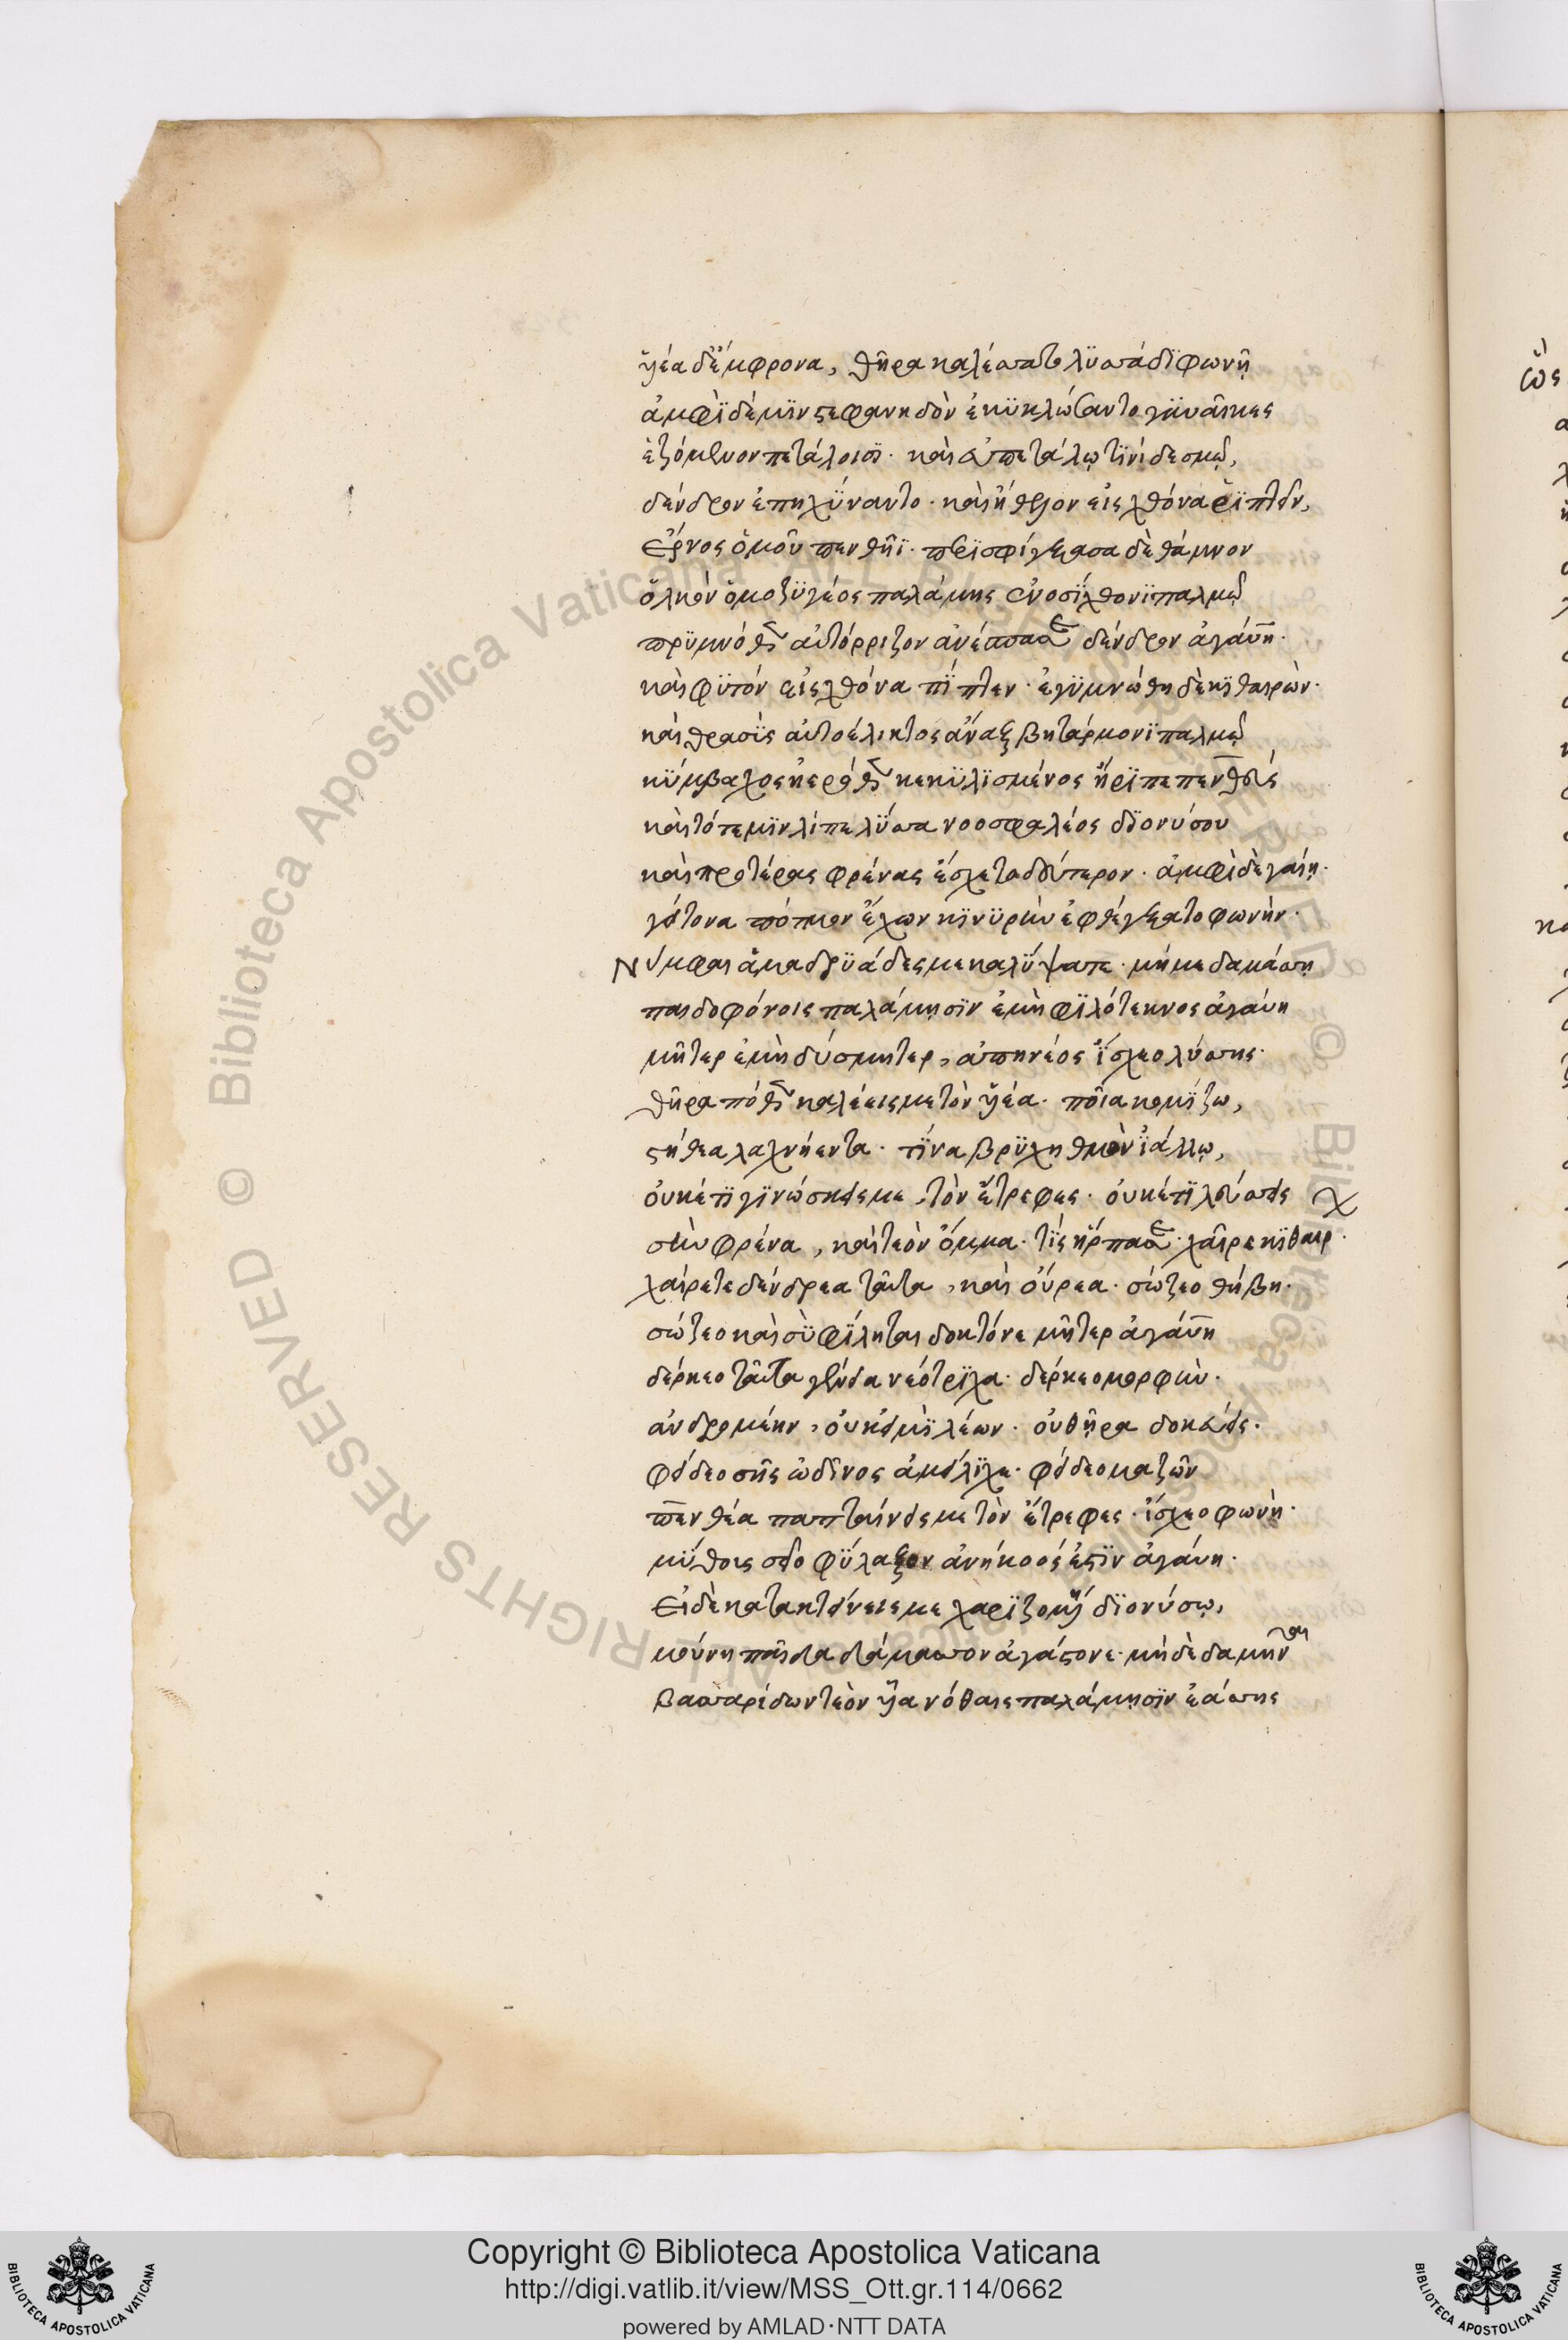 ὑϊέα δ' ἔμφρονα, θῆρα καλέσσατο λυσσάδι φωνῇ
ἀμφὶ δέ μιν στεφανηδὸν ἐκυκλώσαντο γυναῖκες
ἑζόμενον πετάλοισι. καὶ ἀπετάλῳ τινὶ δεσμῷ,
δένδρον ἐπηχύναντο. καὶ ἤθελον εἰς χθόνα ῥίπτειν,
ἔρνος ὁμοῦ πενθῆϊ. περισφίγξασα δὲ θάμνον
ὁλκὸν ὁμοζυγέος παλάμης ἐνοσίχθονι παλμῷ
πρυμνόθεν αὐτόρριζον ἀνέσπασε δένδρον ἀγαύη.
καὶ φυτὸν εἰς χθόνα πίπτεν. ἐγυμνώθη δὲ κιθαιρών.
καὶ θρασὺς αὐτοέλικτος ἄναξ βητάρμονι παλμῷ
κύμβαχος ἠερόθεν κεκυλισμένος ἤριπε πενθεύς
καὶ τότε μιν λίπε λύσσα νοοσφαλέος διονύσου
καὶ προτέρας φρένας ἔσχε τοδεύτερον. ἀμφὶ δὲ γαίῃ.
γείτονα πότμον ἔχων κινυρὴν ἐφθέγξατο φωνήν.
Νύμφαι ἁμαδρυάδες με καλύψατε. μή με δαμάσσῃ
παιδοφόνοις παλάμῃσιν ἐμὴ φιλότεκνος ἀγαύη
μῆτερ ἐμὴ δύσμητερ, ἀπηνέος ἴσχεο λύσσης.
θῆρα πόθεν καλέεις με τὸν ὑϊέα. ποῖα κομίζω,
στήθεα λαχνήεντα. τίνα βρυχηθμὸν ἰάλλω,
οὐκέτι γινώσκεις με, τὸν ἔτρεφες. οὐκέτι λεύσσεις
σὴν φρένα, καὶ τεὸν ὄμμα. τίς ἥρπασε. χαῖρε κιθαιρ.
χαίρετε δένδρεα ταῦτα, καὶ οὔρεα. σώζεο θήβη.
σώζεο καὶ σὺ φίλη παιδοκτόνε μῆτερ ἀγαύη
δέρκεο ταῦτα γένεια νεότριχα. δέρκεο μορφήν.
ἀνδρομέην, οὐκ εἰμὶ λέων. οὐ θῆρα δοκεύεις.
φείδεο σῆς ὠδῖνος ἀμείλιχε. φείδεο μαζῶν
πενθέα παπταίνεις με τὸν ἔτρεφες. ἴσχεο φωνή.
μύθοις σεῖο φύλαξον ἀνήκοός ἐστιν ἀγαύη.
Εἰ δὲ κατακτείνεις με χαριζομένη διονύσῳ,
μούνη παῖδα δάμασσον ἀγάστονε. μὴ δὲ δαμῆναι
βασσαρίδων τεὸν υἷα νόθαις παλάμῃσιν ἐάσσης
Copyright © Biblioteca Apostolica Vaticana
http://digi.vatlib.it/view/MSS_Ott.gr.114/0662
powered by AMLAD·NTT DATA